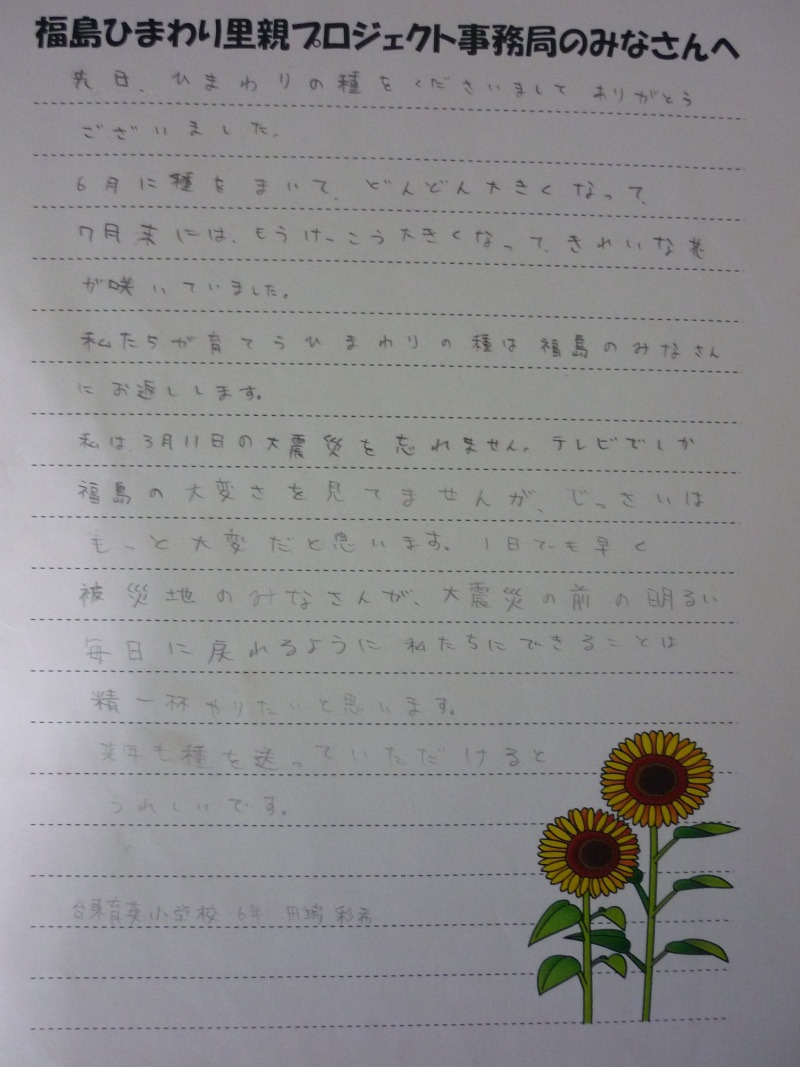 福島ひまわり里親プロジェクト事務局のみなさんへ
先日、ひまわりの種をくださいまして ありがとう
ございました。
6月に種をまいて、どんどん大きくなって、
7月末には、もうけっこう大きくなって、きれいな花
が咲いていました。
私たちが育てうひまわりの種は福島のみなさん
にお返しします。
私は、3月11日の大震災を忘れません。テレビでしか
福島の大変さを見てませんが、じっさいは
もっと大変だと思います。1日でも早く
被災地のみなさんが、大震災の前の明るい
毎日に戻れるように私たちにできることは
精一杯やりたいと思います。
来年も種を送っていただけると
うれしいです。
台東育英小学校 6年 田端 彩希